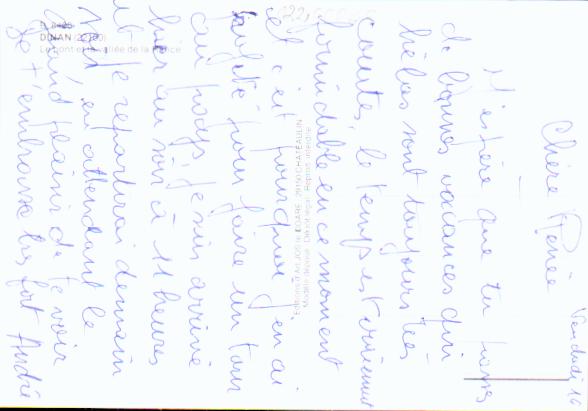 Vendredi 16
Chère Renée
J'espère que tu passes
de bonnes vacances qui
hélas sont toujours très
courtes, le temps est vraiment
formidable en ce moment
et c'est pourquoi j'en ai
profité pour faire un tour
au pays. Je suis arrivé
hier au soir à 11 heures
et je repartirai demain
en attendant le
grand plaisir de te voir
Je t'embrasse très fort André
DINAN (22100)
Le pont et la vallée de la Rance
Editions d'Art JOS le DOARÉ, 29150 CHATEAULIN
Modèle déposé - Reproduction interdite